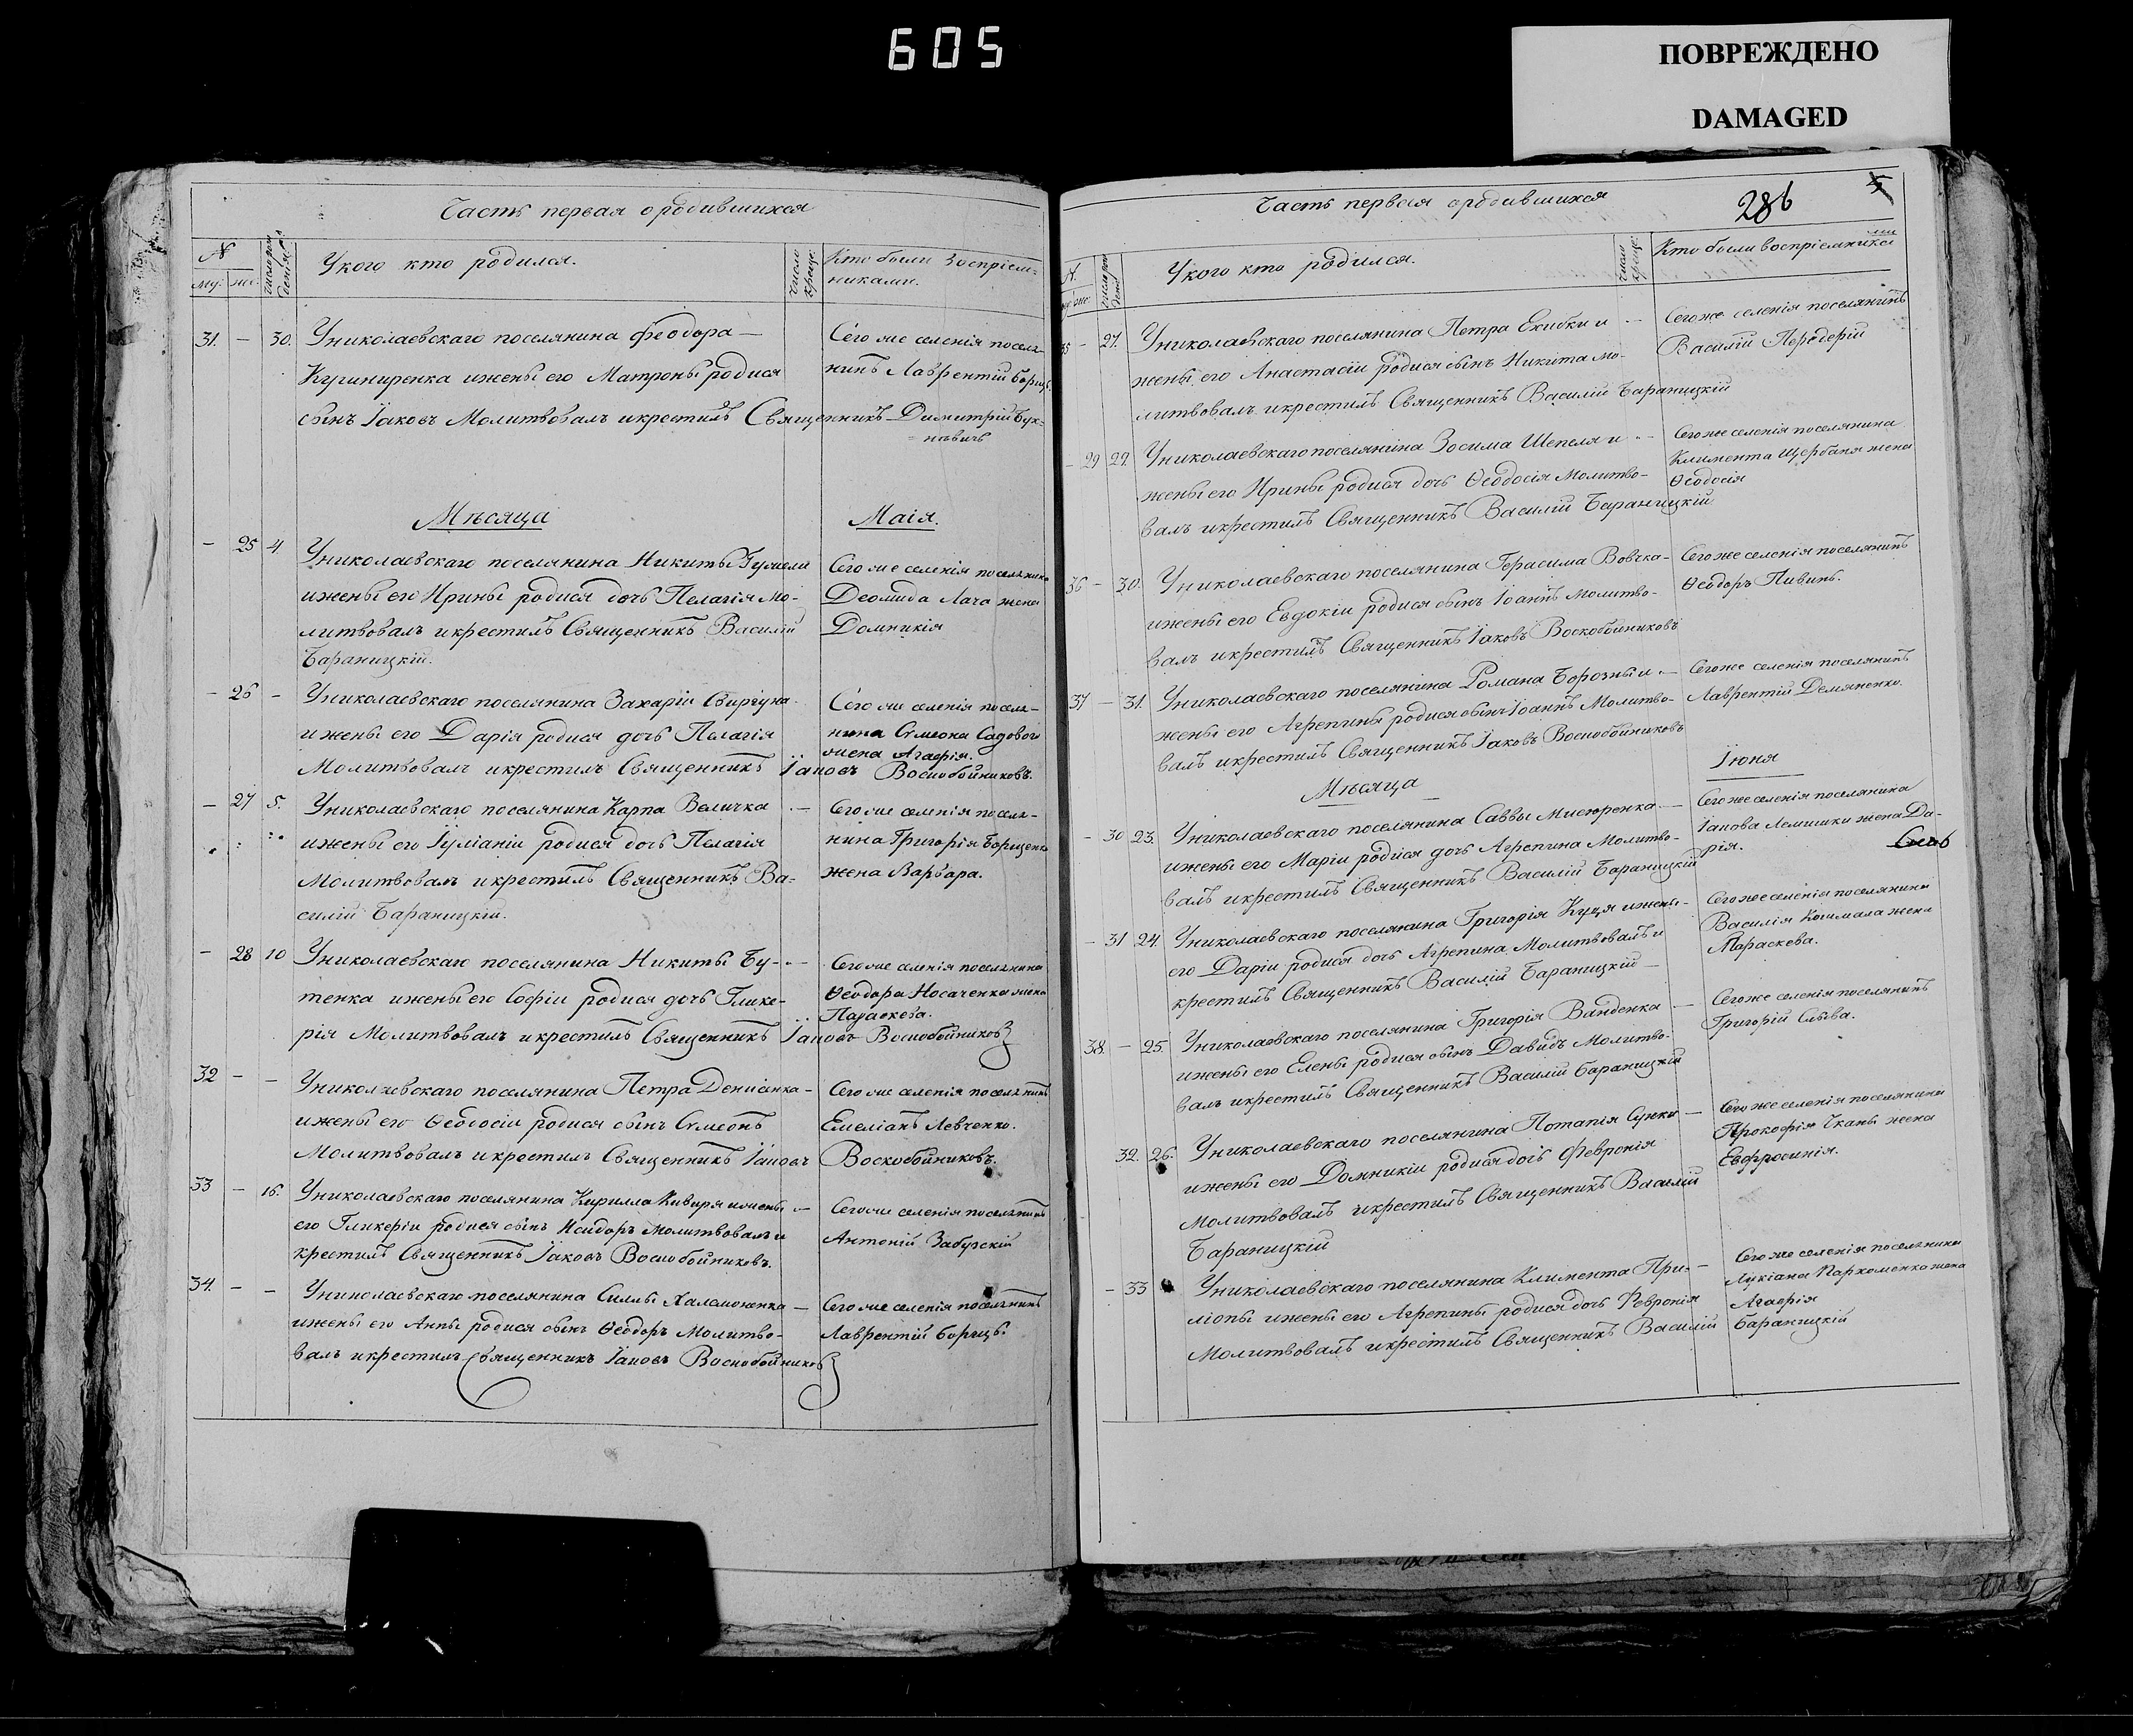 605
ПОВРЕЖДЕНО
DAMAGED
Часть первая о родившихся
№
му. же.
число рож
денія
У кого кто родился.
число
креще:
Кто были воспріем-
никами.
31. — 30. У николаевскаго поселянина Феодора — Сего же селенія поселя-
Кушниренка и жены его Матроны родися нинъ Лаврентій Борищъ
сынъ Іаковъ Молитвовалъ и крестилъ Священникъ Димитрій Бух-
=невичъ
Мѣсяца Маія.
— 25 4. У николаевскаго поселянина Никиты Сего же селенія поселянина
и жены его Ирины родися дочь Пелагія мо- Деомида Лача жена
литвовалъ и крестилъ Священникъ Василій Домникія
Бараницкій.
— 26 — У николаевскаго поселянина Захарія Свиргуна Сего же селенія поселя-
и жены его Дарія родися дочь Пелагія нина Сѵмеона Садового
жена Агафія.
Молитвовалъ и крестилъ Священникъ Іаковъ Воскобойниковъ.
— 27 5. У николаевскаго поселянина Карпа Величка — Сего же селенія поселя-
и жены его Іуліаніи родися дочь Пелагія нина Григорія Борищенка
Молитвовалъ и крестилъ Священникъ Ва- жена Варвара.
силій Бараницкій.
— 28 10 У николаевскаго поселянина Никиты Бу- — Сего же селенія поселянина
тенка и жены его Софіи родися дочь Глике- Ѳеодора Носаченка жена
Параскева.
рія Молитвовалъ и крестилъ Священникъ Іаковъ Воскобойниковъ
32 — — У николаевскаго поселянина Петра Денисенка — Сего же селенія поселянинъ
и жены его Ѳеодосіи родися сынъ Сѵмеонъ Емеліанъ Левченко.
Молитвовалъ и крестилъ Священникъ Іаковъ Воскобойниковъ.
33 — 16. У николаевскаго поселянина Кирилла Кивиря и жены — Сего же селенія поселянинъ
его Гликеріи родися сынъ Исидоръ Молитвовалъ и Антоній Забузскій
крестилъ Священникъ Іаковъ Воскобойниковъ.
34. — — У николаевскаго поселянина Силы Халамоненка — Сего же селенія поселянинъ
и жены его Анны родися сынъ Ѳеодоръ Молитво- Лаврентій Борищъ
валъ и крестилъ Священникъ Іаковъ Воскобойниковъ
Часть первая о родившихся
286
5
№
му. же.
число рож
дені
У кого кто родился.
число
креще:
Кто были воспріемника
ми
35 — 27. У николаевскаго поселянина Петра Екибки и — Сего же селенія поселянинъ
жены его Анастасіи родися сынъ Никита мо- Василій Передерій
литвовалъ и крестилъ Священникъ Василій Бараницкій
— 29 29. У николаевскаго поселянина Зосима Шепеля и — Сего же селенія поселянина
Климента Щербаня жена
жены его Ирины родися дочь Ѳеодосія Молитво- Ѳеодосія
валъ и крестилъ Священникъ Василій Бараницкій.
36 — 30. У николаевскаго поселянина Герасима Вовчка — Сего же селенія поселянинъ
и жены его Евдокіи родися сынъ Іоаннъ Молитво- Ѳеодоръ Пивинь.
валъ и крестилъ Священникъ Іаковъ Воскобойниковъ
37 — 31. У николаевскаго поселянина Романа Борозны и — Сего же селенія поселянинъ
жены его Агрепины родися сынъ Іоаннъ Молитво- Лаврентій Демяненко.
валъ и крестилъ Священникъ Іаковъ Воскобойниковъ
Мѣсяца Іюня
— 30 23. У николаевскаго поселянина Саввы Мисюренка — Сего же селенія поселянина
и жены его Маріи родися дочь Агрепина Молитво- Іакова Лемишки жена Да-
валъ и крестилъ Священникъ Василій Бараницкій рія.
— 31 24. У николаевскаго поселянина Григорія Куця и жены — Сего же селенія поселянина
его Даріи родися дочь Агрепина Молитвовалъ и Василія Кошмала жена
крестилъ Священникъ Василій Бараницкій — Параскева.
38. — 25. У николаевскаго поселянина Григорія Ванденка — Сего же селенія поселянинъ
и жены его Елены родися сынъ Давидъ Молитво- Григорій Сльва.
валъ и крестилъ Священникъ Василій Бараницкій
32. 26. У николаевскаго поселянина Потапія Сучка — Сего же селенія поселянина
и жены его Домникіи родися дочь Февронія Прокофія Ткань жена
Молитвовалъ и крестилъ Священникъ Василій Евфросинія.
Бараницкій
— 33 У николаевскаго поселянина Климента При- — Сего же селенія поселянина
ліопы и жены его Агрепины родися дочь Февронія Лукіана Пархоменка жена
Агафія
Молитвовалъ и крестилъ Священникъ Василій Бараницкій